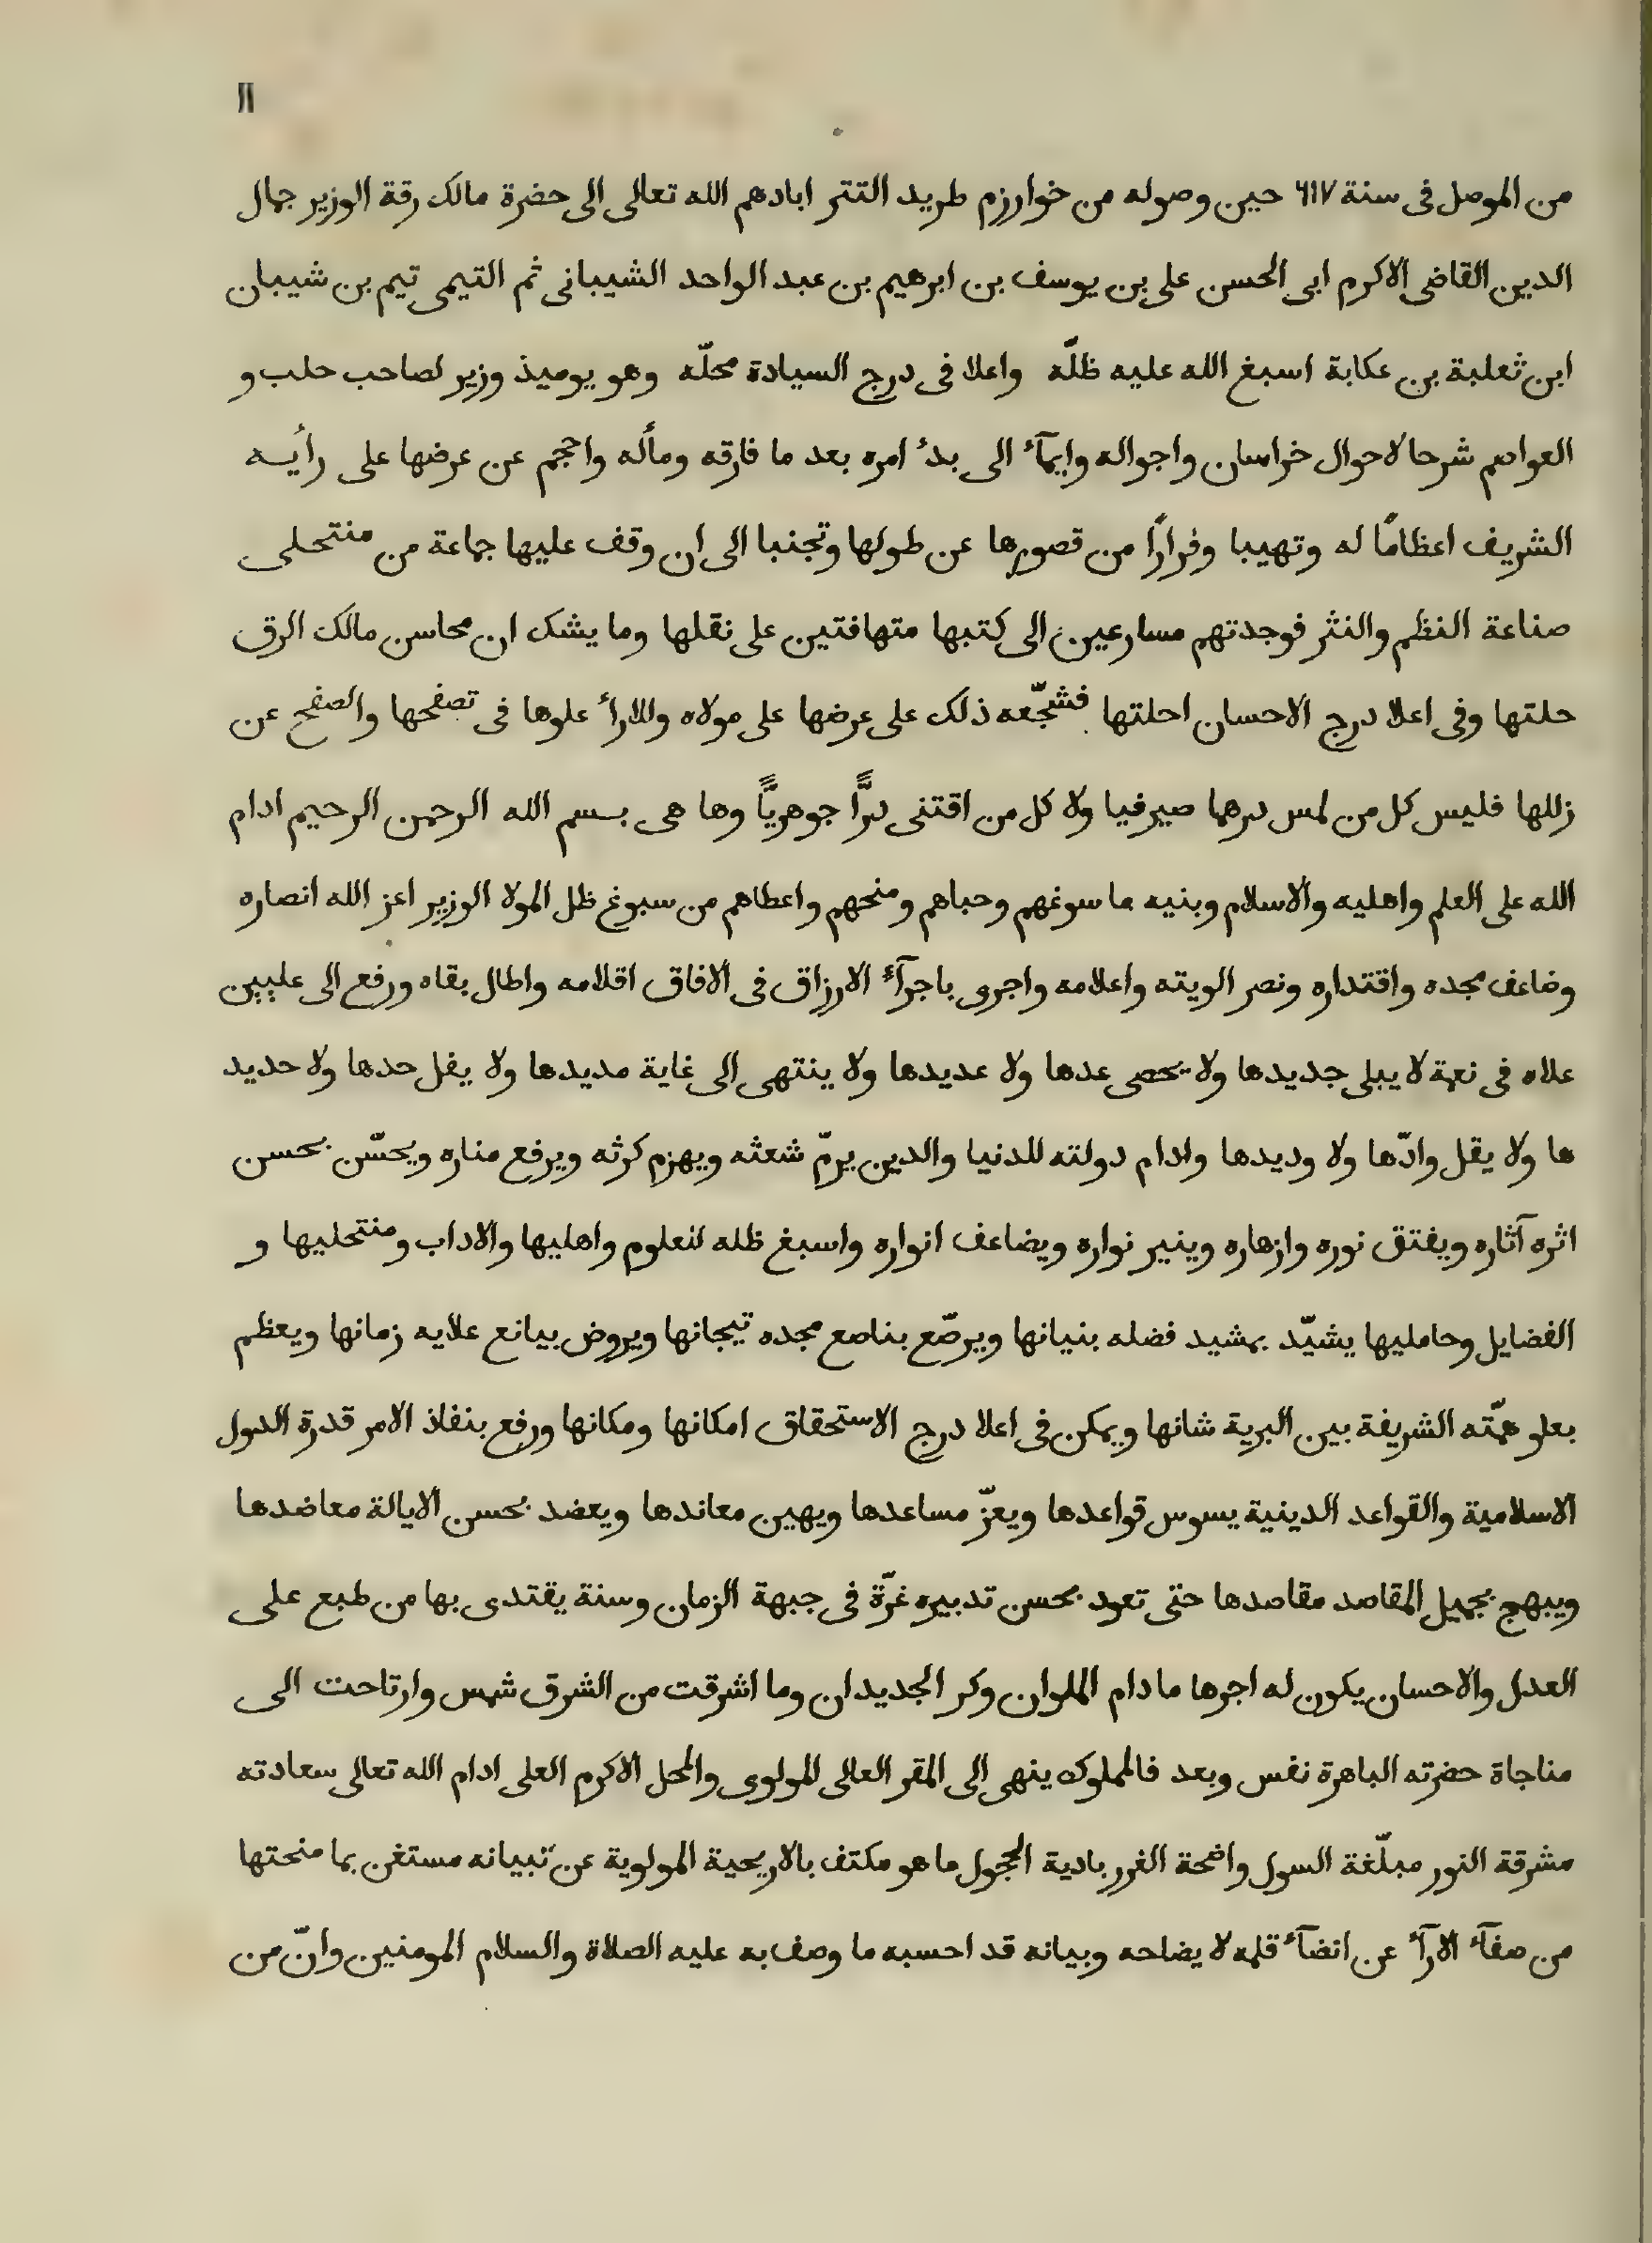 ١١
من الموصل فى سنة ٦١٧ حين وصوله من خوارزم طريد التتر ابادهم الله تعالى الى حضرة مالك رقة الوزير جمال
الدين القاضى الاكرم ابى الحسن على بن يوسف بن ابرهيم بن عبد الواحد الشيبانى ثم التيمى تيم بن شيبان
ابن ثعلبة بن عكابة اسبغ الله عليه ظلّه واعلا فى درج السيادة محلّه وهو يوميذ وزير لصاحب حلب و
العواصم شرحا لاحوال خراسان واحواله وايمآء الى بدء امره بعد ما فارقه ومأله واحجم عن عرضها على رأيه
الشريف اعظامًا له وتهيبا وفرارًا من قصورها عن طولها وتجنبا الى ان وقف عليها جماعة من منتحلى
صناعة النظم والنثر فوجدتهم مسارعين الى كتبها متهافتين على نقلها وما يشك ان محاسن مالك الرق
حلتها وفى اعلا درج الاحسان احلتها فشجّعه ذلك على عرضها على مولاه وللارأ علوها فى تصفحها والصفح عن
زللها فليس كل من لمس درهما صيرفيا ولا كل من اقتنى درًّا جوهريًّا وها هى بسم الله الرحمن الرحيم ادام
الله على العلم واهليه والاسلام وبنيه ما سوغهم وحباهم ومنحهم واعطاهم من سبوغ ظل المولا الوزير اعز الله انصاره
وضاعف مجده واقتداره ونصر الويته واعلامه واجرى باجرآء الارزاق فى الافاق اقلامه واطال بقاه ورفع الى عليين
علاه فى نعمة لا يبلى جديدها ولا يحصى عدها ولا عديدها ولا ينتهى الى غاية مديدها ولا يفل حدها ولا حديد
ها ولا يقل وادّها ولا وديدها وادام دولته للدنيا والدين يرمّ شعثه ويهزم كرثه ويرفع مناره ويحسّن بحسن
اثره آثاره ويفتق نوره وازهاره وينير نواره ويضاعف انواره واسبغ ظله للعلوم واهليها والاداب ومنتحليها و
الفضايل وحامليها يشيّد بمشيد فضله بنيانها ويرصّع بناصع مجده تيجانها ويروض بيانع علايه زمانها ويعظم
بعلو همّته الشريفة بين البرية شانها ويمكن فى اعلا درج الاستحقاق امكانها ومكانها ورفع بنفاذ الامر قدرة الدول
الاسلامية والقواعد الدينية يسوس قواعدها ويعزّ مساعدها ويهين معاندها ويعضد بحسن الايالة معاضدها
ويبهج بجميل المقاصد مقاصدها حتى تعود بحسن تدبيره غرّة فى جبهة الزمان وسنة يقتدى بها من طبع على
العدل والاحسان يكون له اجرها ما دام الملوان وكر الجديدان وما اشرقت من الشرق شمس وارتاحت الى
مناجاة حضرته الباهرة نفس وبعد فالمملوك ينهى الى المقر العالى المولوى والمحل الاكرم العلى ادام الله تعالى سعادته
مشرقة النور مبلّغة السول واضحة الغرر بادية الحجول ما هو مكتف بالاريحية المولوية عن تبيانه مستغن بما منحتها
من صفآء الارآء عن انضآء قلمه لا يضاحه وبيانه قد احسبه ما وصف به عليه الصلاة والسلام المومنين وانّ من